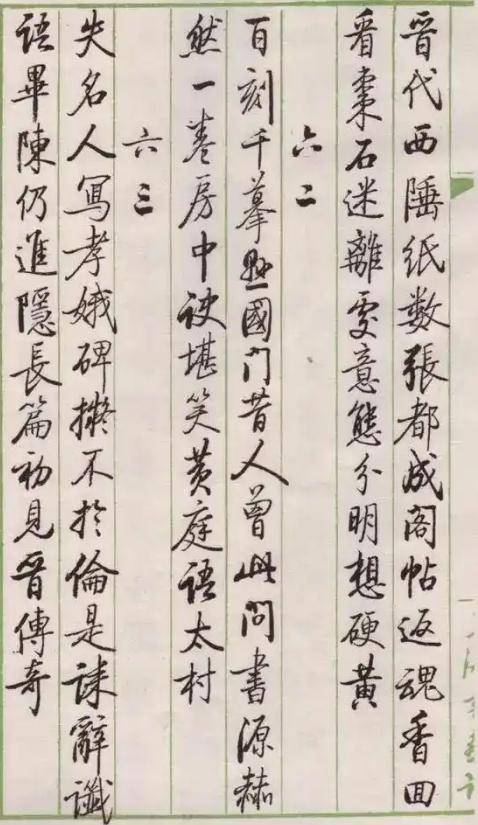 晉代西陲纸数張都成阁帖返魂香回
看棗石迷離處意態分明想硬黄
六二
百刻千摹悬國门昔人曾此问書源赫
然一卷房中诀堪笑黄庭语太村
六三
失名人寫孝娥碑擬不於倫是誄辭讖
語畢陳仍進隱長篇初見晉傳奇